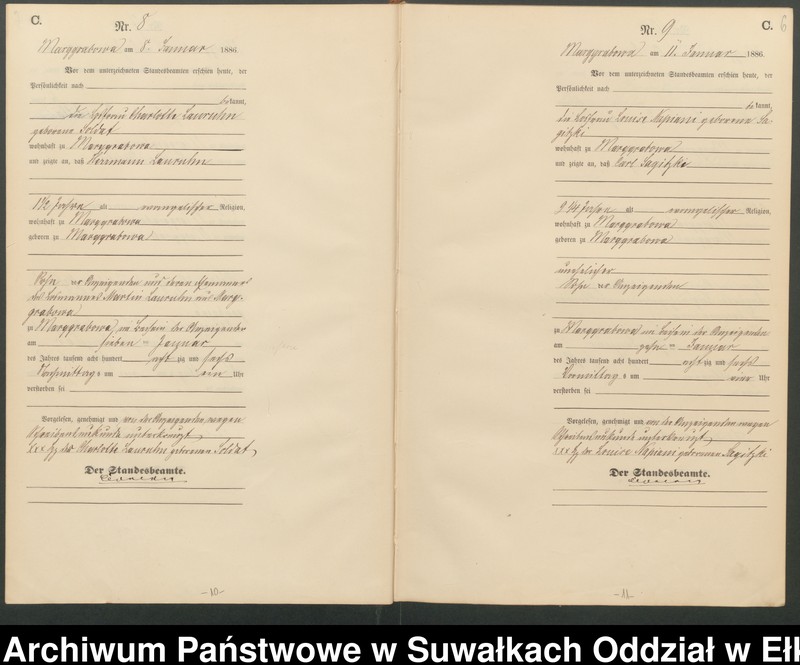 C.
Nr. 8
Marggrabowa am 8. Januar 1886.
Vor dem unterzeichneten Standesbeamten erschien heute, der
Persönlichkeit nach
bekannt,
die Charlotte Lauruhn
geborene Soldat
wohnhaft zu Marggrabowa
und zeigte an, daß Herrmann Lauruhn
1 1/2 Jahre alt evangelischer Religion,
wohnhaft zu Marggrabowa
geboren zu Marggrabowa
Sohn der Anzeigenden und deren Ehemannes
des Martin Lauruhn aus Marg-
grabowa
zu Marggrabowa, im Beisein der Anzeigenden
am sieben ten Januar
des Jahres tausend acht hundert acht zig und sechs
Nachmittag s um ein Uhr
verstorben sei
Vorgelesen, genehmigt und von der Anzeigenden wegen
Schreibensunkunde unterkreuzt,
xxx Hz der Charlotte Lauruhn geborenen Soldat,
Der Standesbeamte.
-10-
C. 6
Nr. 9
Marggrabowa am 11. Januar 1886.
Vor dem unterzeichneten Standesbeamten erschien heute, der
Persönlichkeit nach
bekannt,
die Louise Napiani geborene Sa-
gitzki
wohnhaft zu Marggrabowa
und zeigte an, daß Carl Sagitzki
2 3/4 Jahre alt evangelischer Religion,
wohnhaft zu Marggrabowa
geboren zu Marggrabowa
unehelicher
Sohn der Anzeigenden
zu Marggrabowa im Beisein der Anzeigenden
am zehn ten Januar
des Jahres tausend acht hundert acht zig und sechs
Vormittag s um Uhr
verstorben sei
Vorgelesen, genehmigt und von der Anzeigenden wegen
Schreibensunkunde unterkreuzt,
xxx Hz der Louise Napiani geborenen Sagitzki
Der Standesbeamte.
-11-
Archiwum Państwowe w Suwałkach Oddział w Ełk